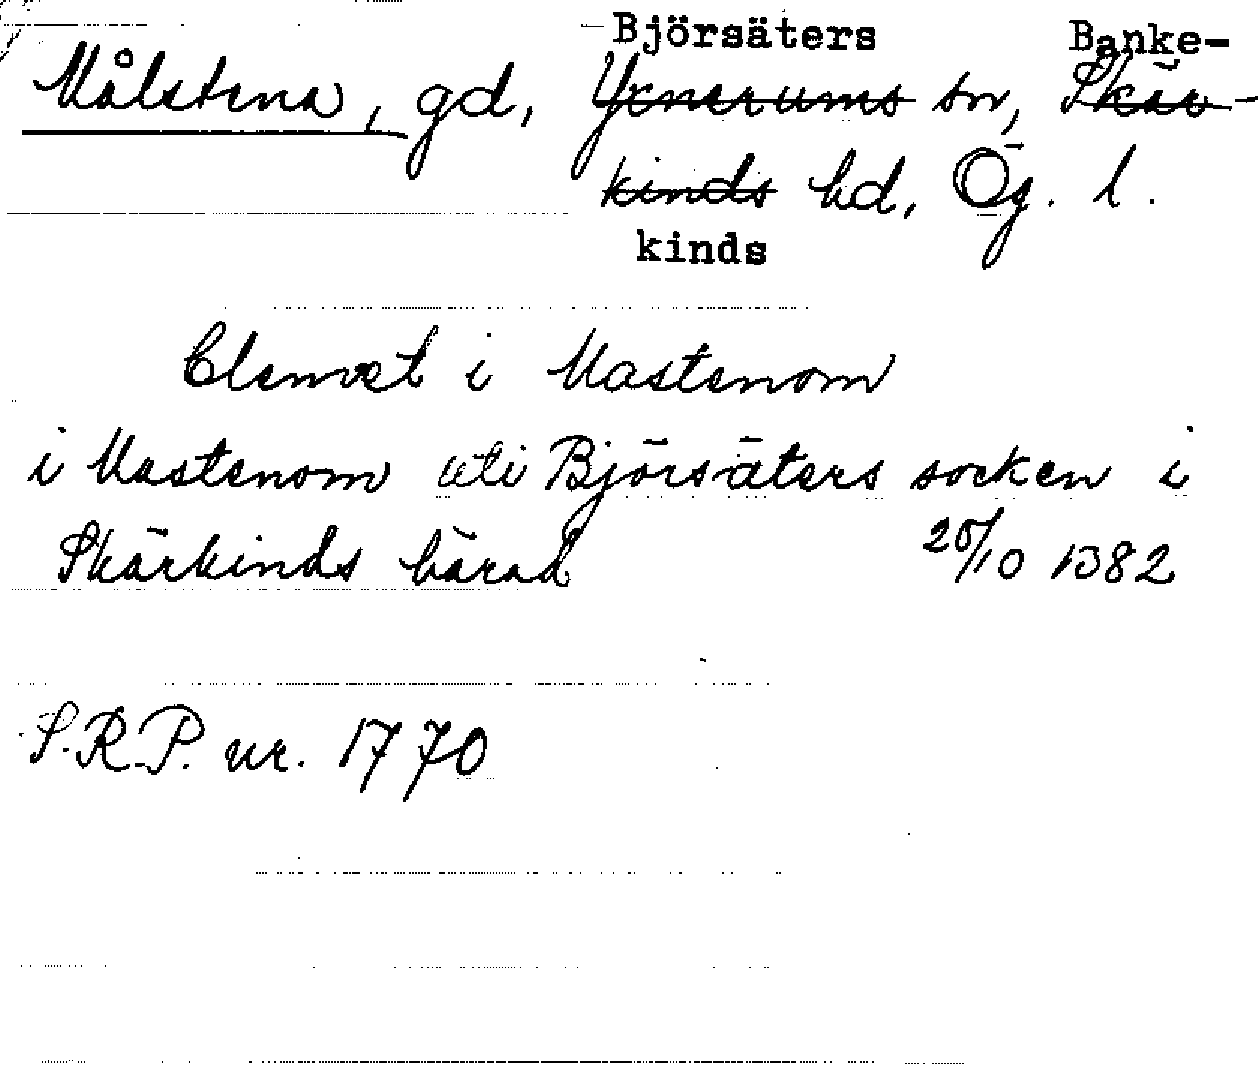 Björsäters Banke-
Målstena, gd, Yxnerums sn, Skär-
kinds hd, Ög. l.
kinds
Clemet i Mastenom
i Mastenom uti Björsäters socken i
Skärkinds härad 20/10 1382
S.R.P. nr. 1770